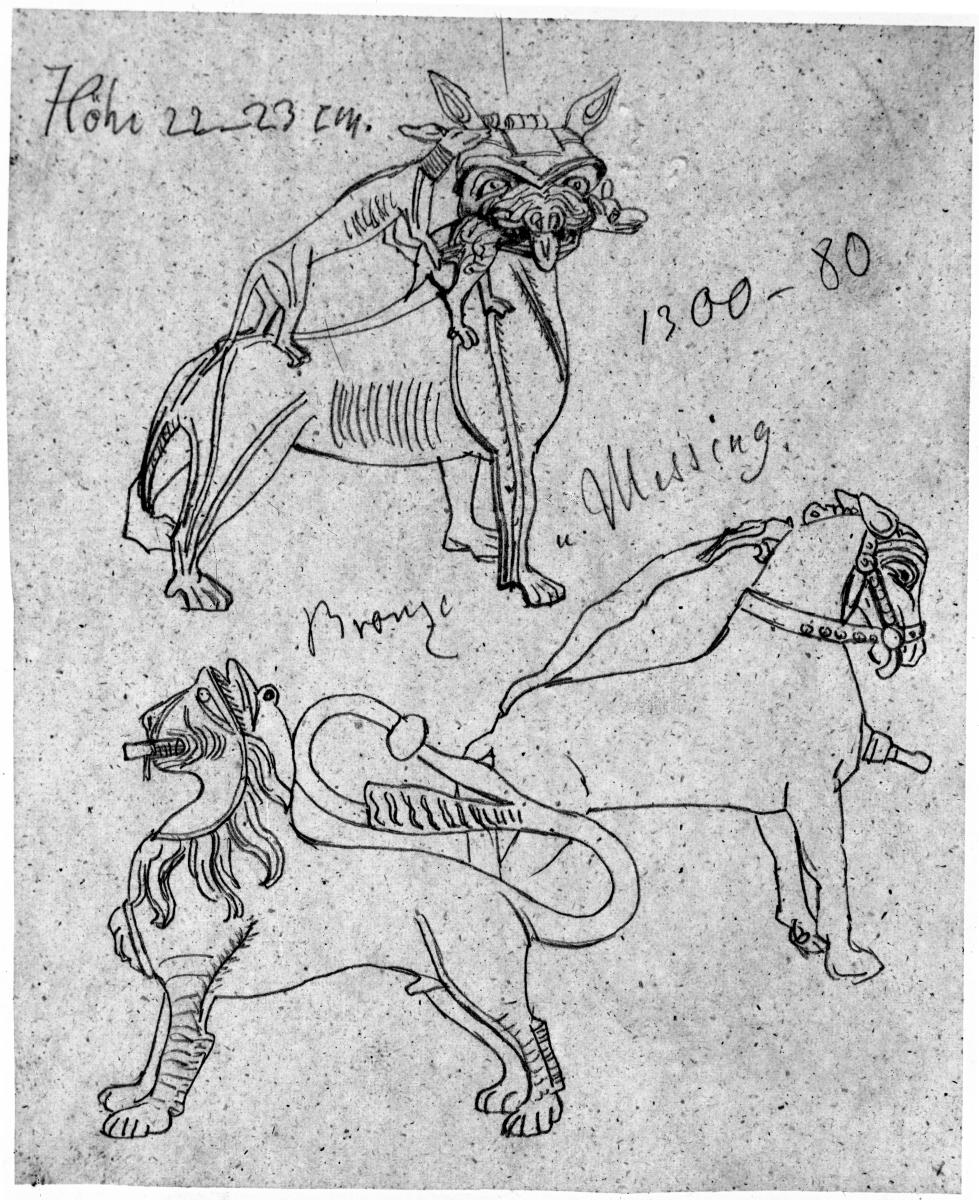 Höhe 22–23 cm.
1300–80
" Messing.
Bronze